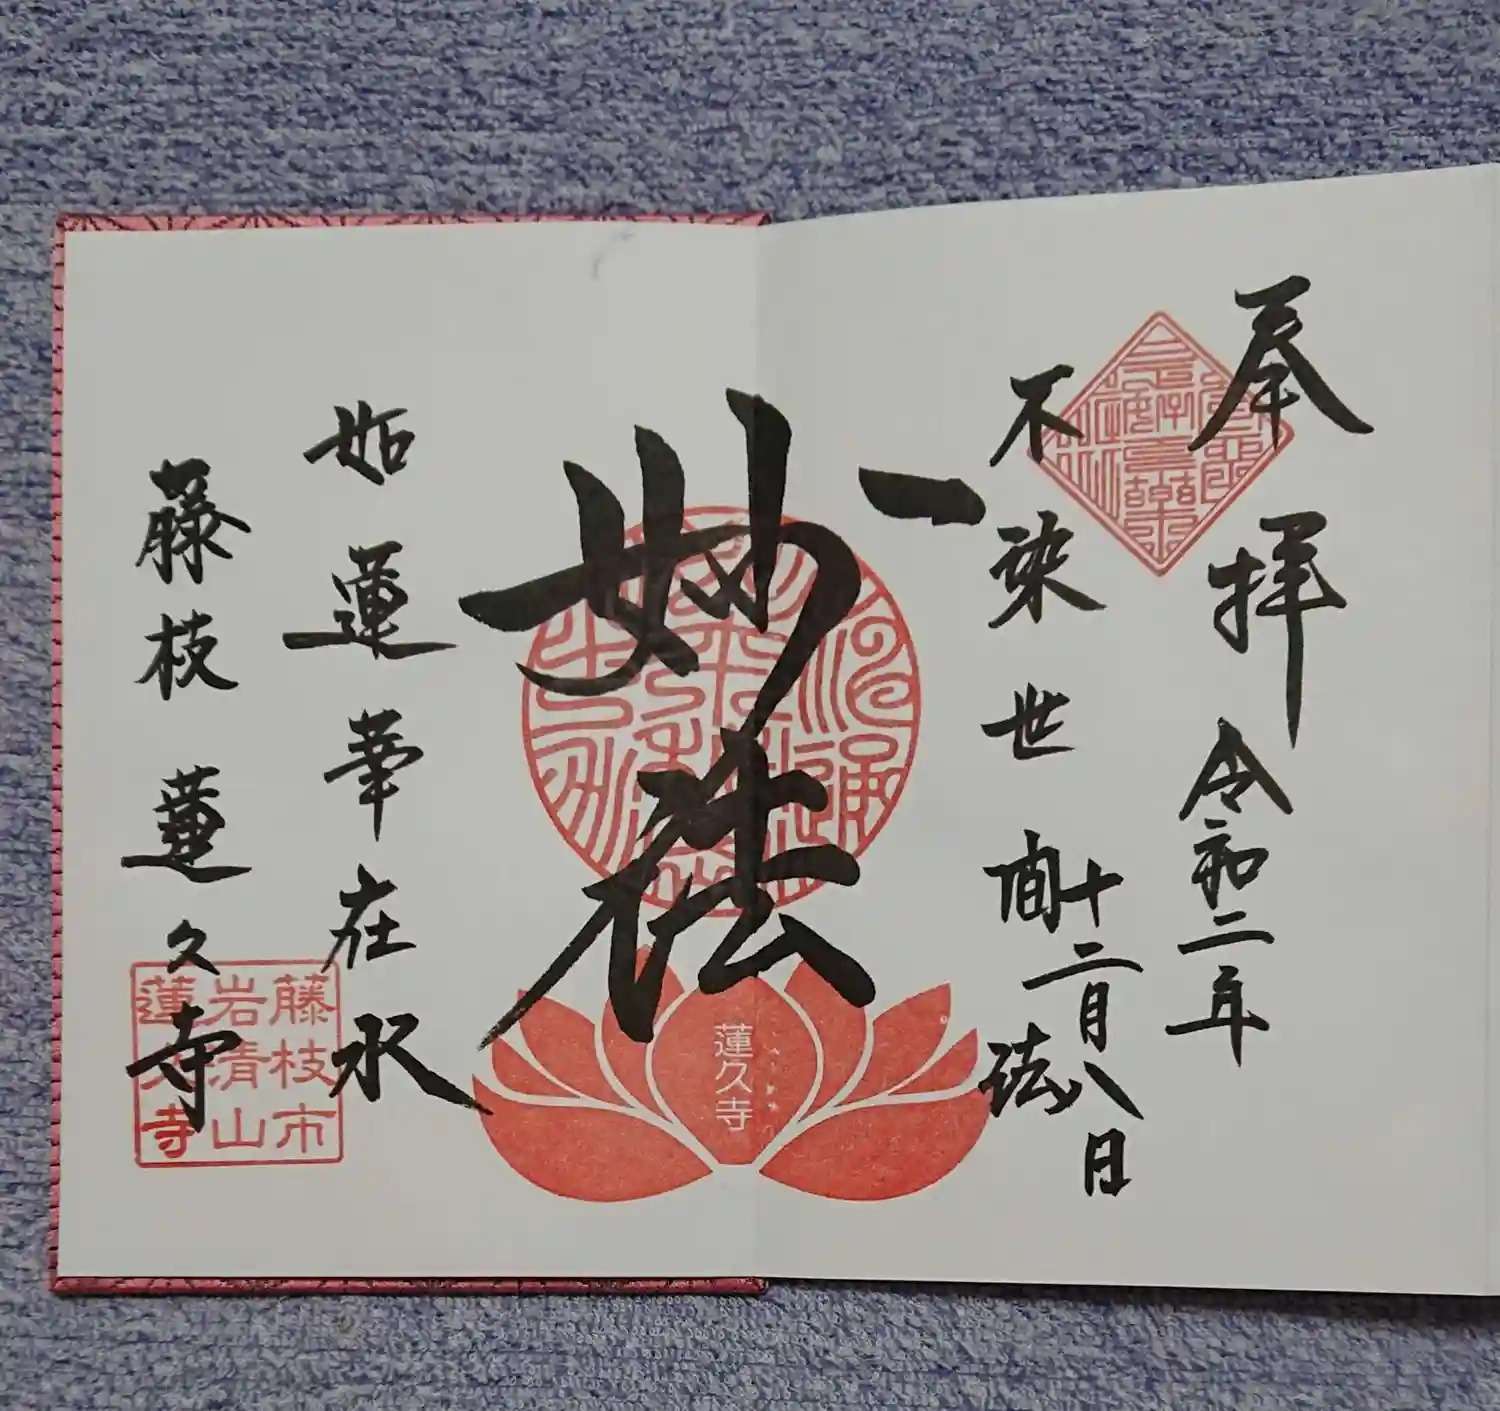 奉拝
令和二年
十二月八日
不染世間法
一
妙法
如蓮華在水
藤枝 蓮久寺
蓮久寺
藤枝市
岩清山
蓮久寺